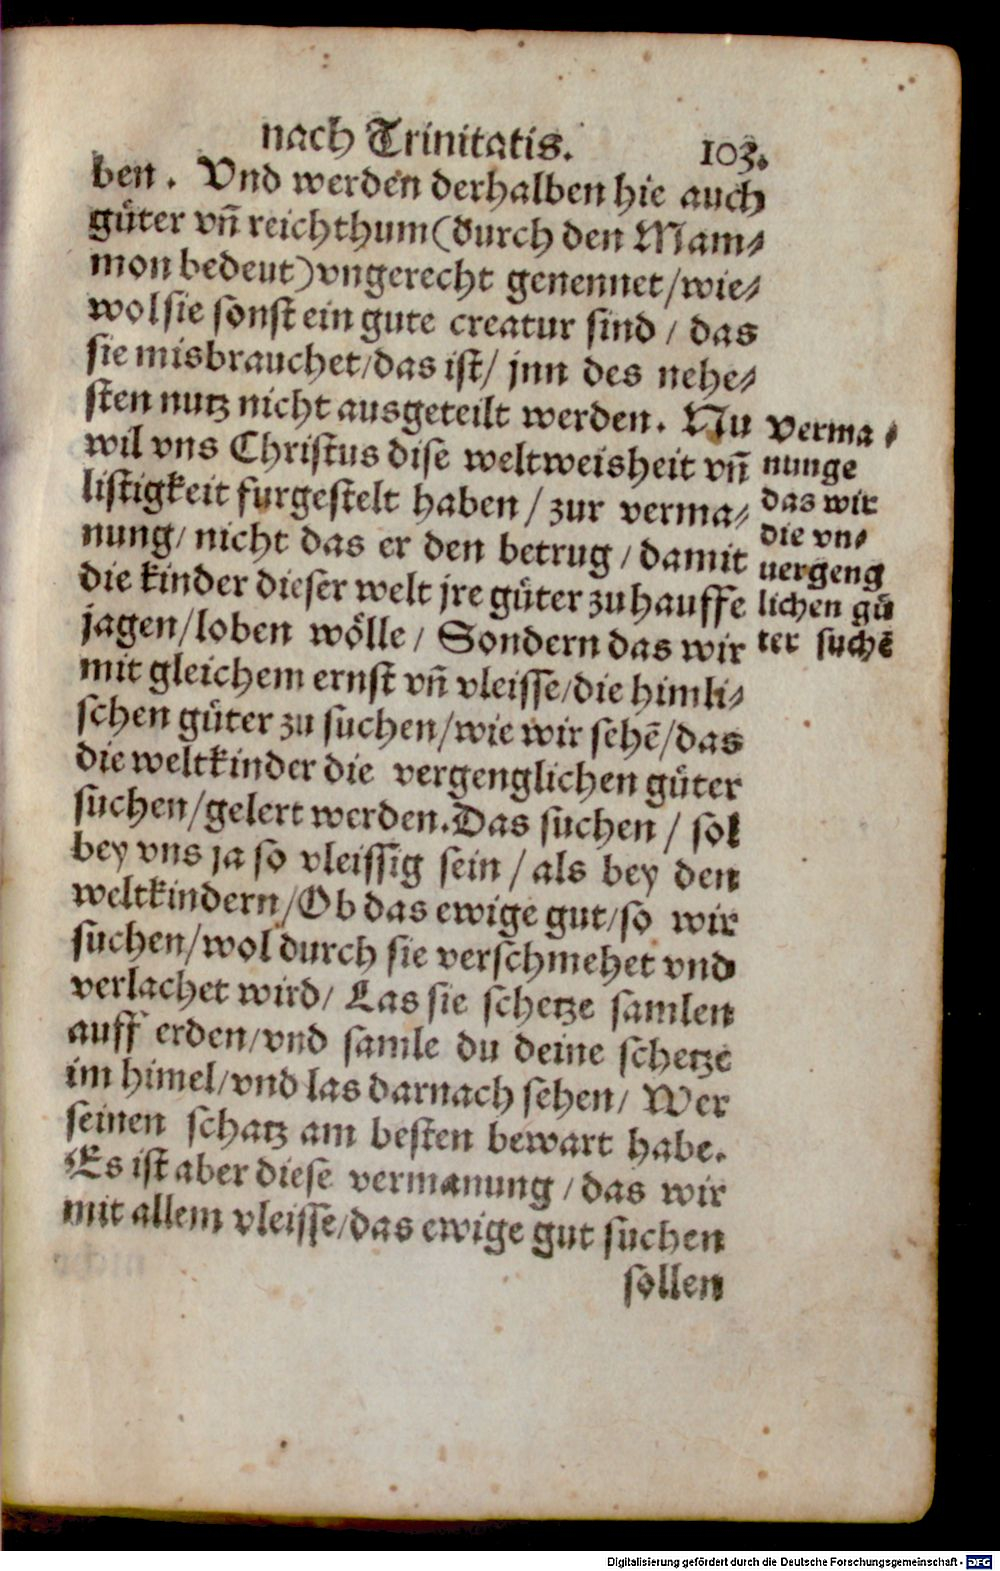 nach Trinitatis. 103.
ben. Vnd werden derhalben hie auch
güter vñ reichthum (durch den Mam⸗
mon bedeut) vngerecht genennet / wie⸗
wol sie sonst ein gute creatur sind / das
sie misbrauchet / das ist / jnn des nehe⸗
sten nutz nicht ausgeteilt werden. Nu
wil vns Christus dise weltweisheit vñ
listigkeit furgestelt haben / zur verma⸗
nung / nicht das er den betrug / damit
die kinder dieser welt jre güter zuhauffe
jagen / loben wölle / Sondern das wir
mit gleichem ernst vñ vleisse / die himli⸗
schen güter zu suchen / wie wir sehē / das
die weltkinder die vergenglichen güter
suchen / gelert werden. Das suchen / sol
bey vns ja so vleissig sein / als bey den
weltkindern / Ob das ewige gut / so wir
suchen / wol durch sie verschmehet vnd
verlachet wird / Las sie schetze samlen
auff erden / vnd samle du deine schetze
im himel / vnd las darnach sehen / Wer
seinen schatz am besten bewart habe.
Es ist aber diese vermanung / das wir
mit allem vleisse / das ewige gut suchen
sollen
Verma⸗
nunge
das wir
die vn⸗
uergeng
lichen gü
ter suchē
Digitalisierung gefördert durch die Deutsche Forschungsgemeinschaft - DFG